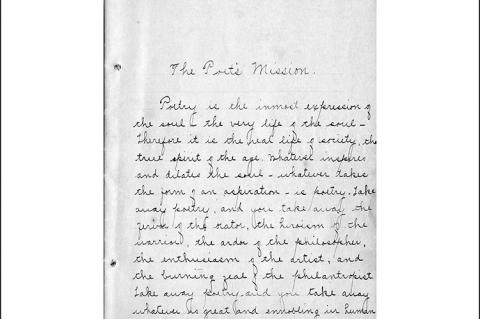 The Poet's Mission.
Poetry is the inmost expression of
the soul – the very life of the soul –
Therefore it is the real life of society, the
true spirit of the age. Whatever inspires
and dilates the soul – whatever takes
the form of an aspiration – is poetry. Take
away poetry, and you take away the
of the orator, the heroism of the
warrior, the ardor of the philosopher,
the enthusiasm of the artist, and
the burning zeal of the philantropist.
Take away poetry and you take away
whatever is great and ennobling in human